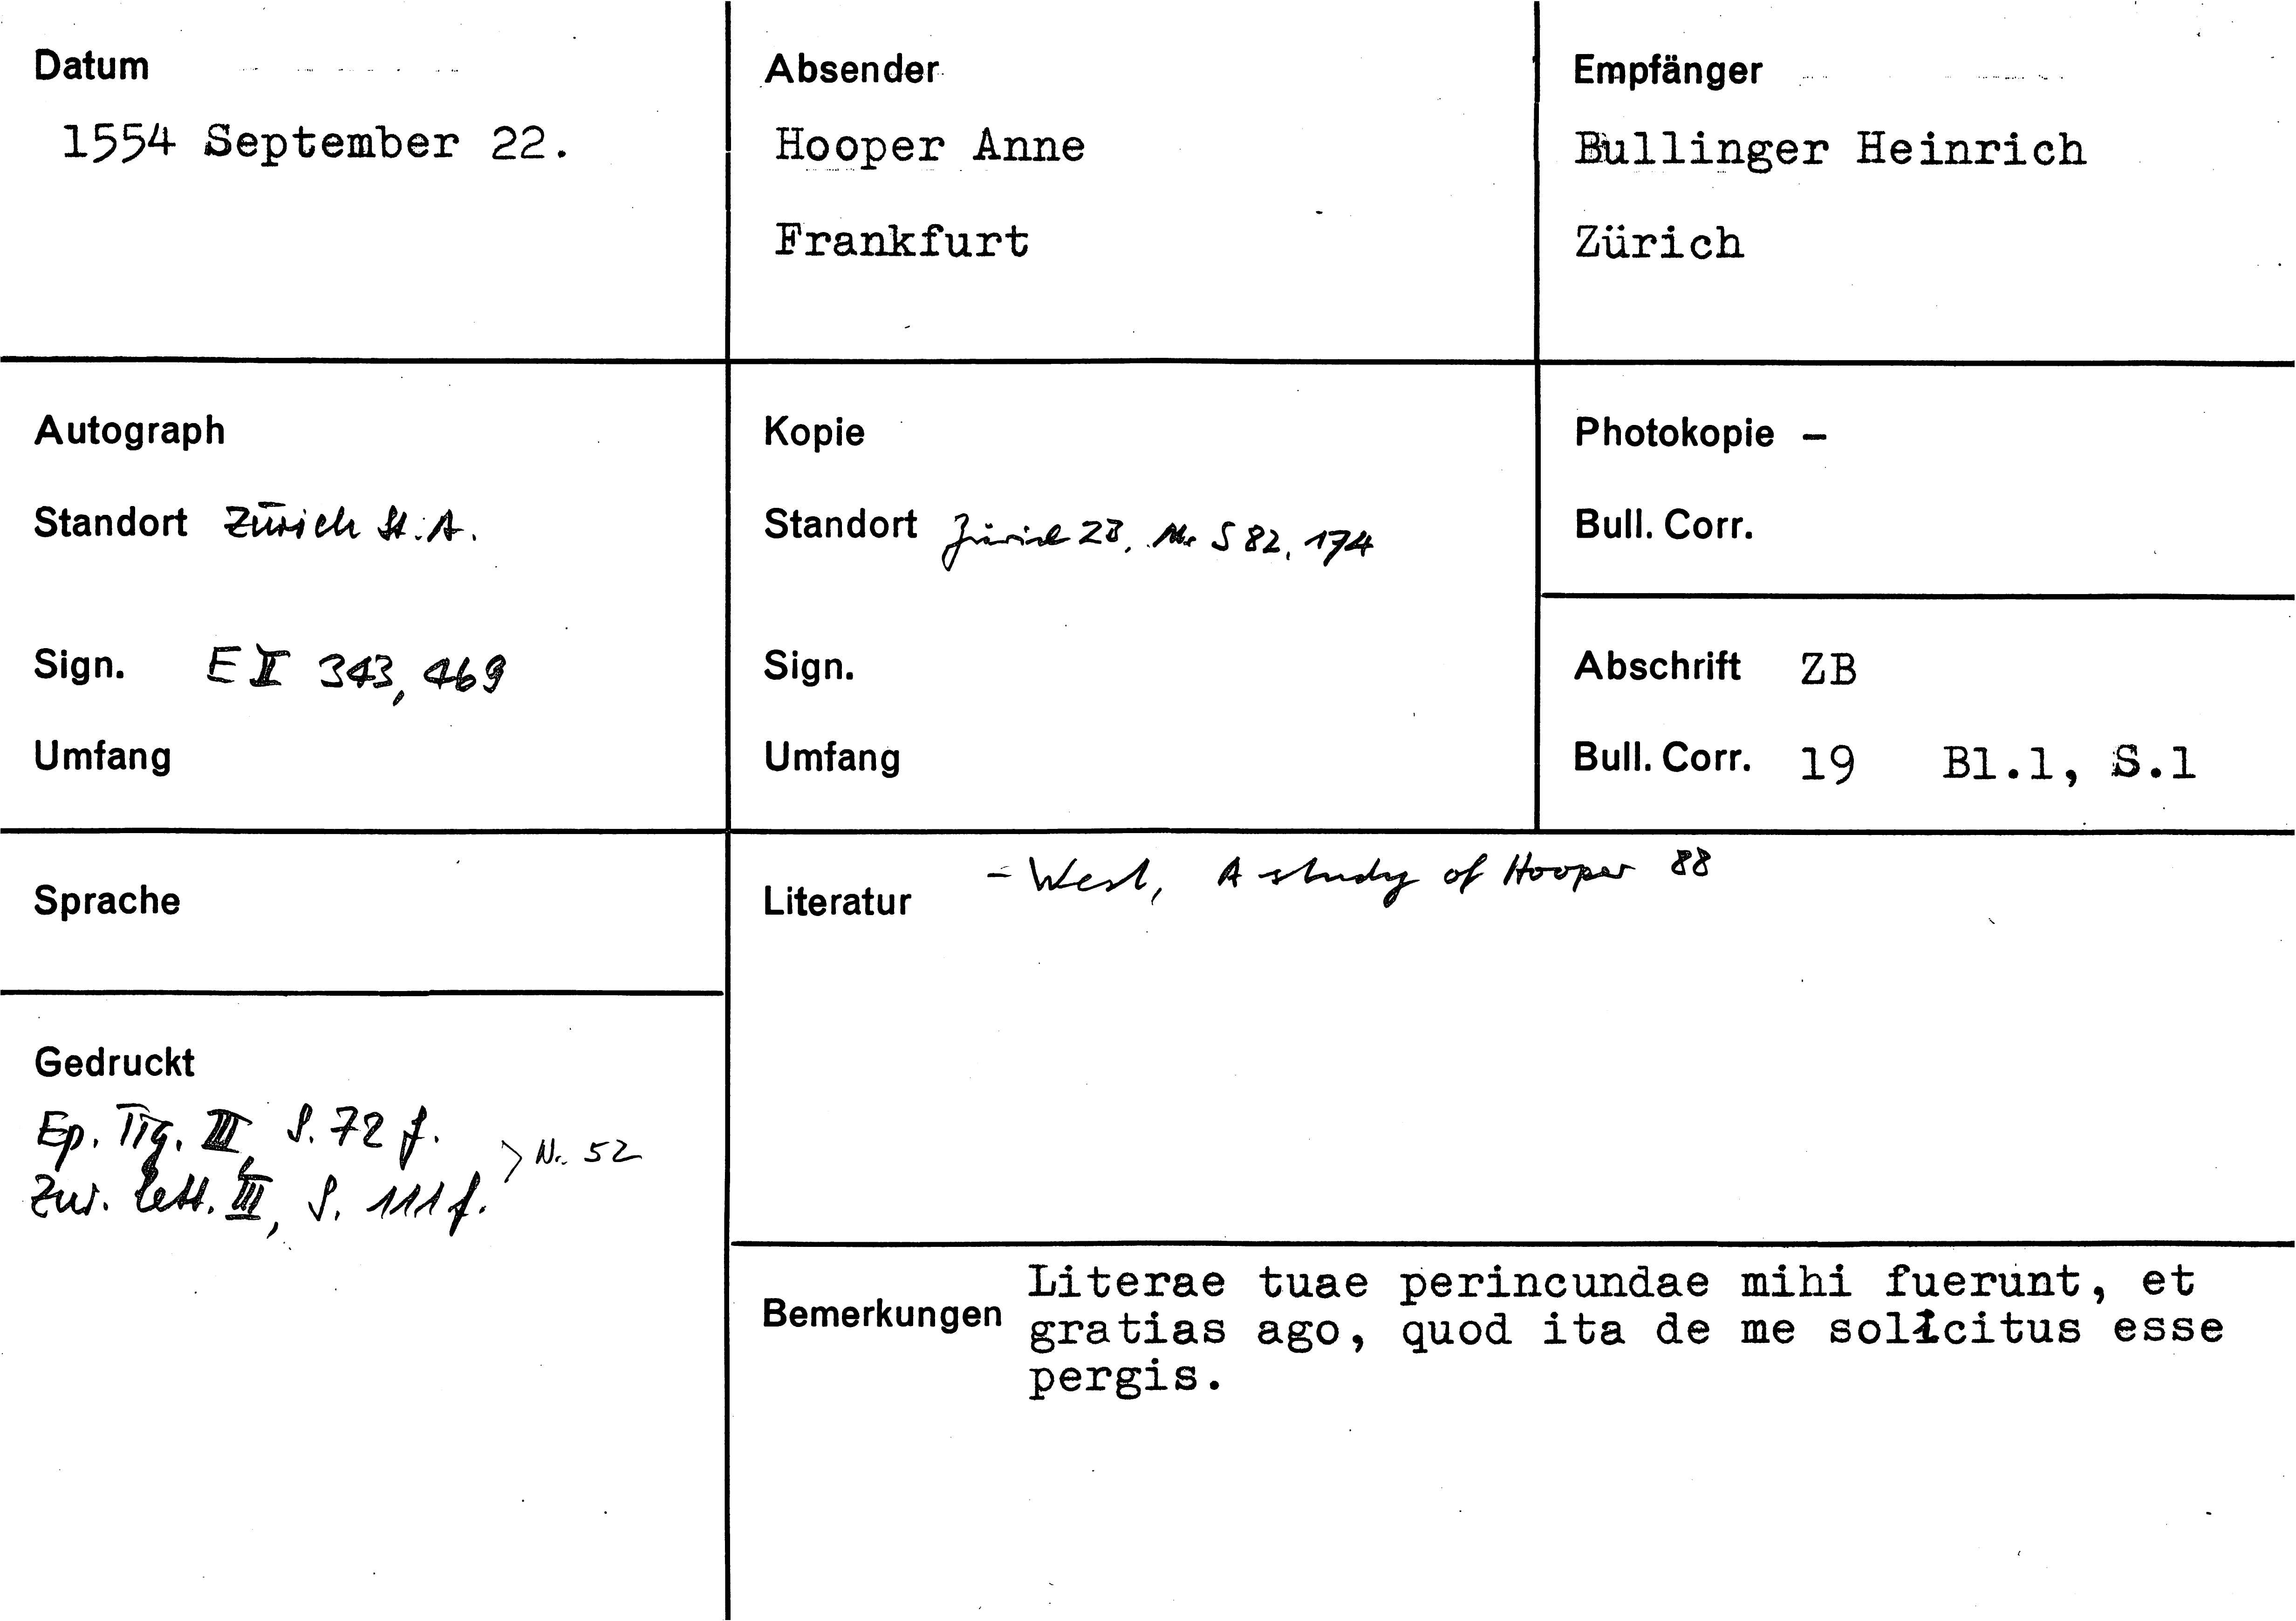 Datum
1554 September 22.
Absender
Hooper Anne
Frankfurt
Empfänger
Bullinger Heinrich
Zürich
Autograph
Standort Zürich St.A.
Sign. E II 343, 469
Umfang
Kopie
Standort Zürich ZB, Ms S 82, 174
Sign.
Umfang
Photokopie –
Bull. Corr.
Abschrift ZB
Bull. Corr. 19 Bl.1, S.1
Sprache
Gedruckt
Ep. Tig. III, S. 72 f.
Zur. lett. III, S. 111 f.
> Nr. 52
Literatur - West, A study of Hooper 88
Bemerkungen Literae tuae perincundae mihi fuerunt, et
gratias ago, quod ita de me solicitus esse
pergis.